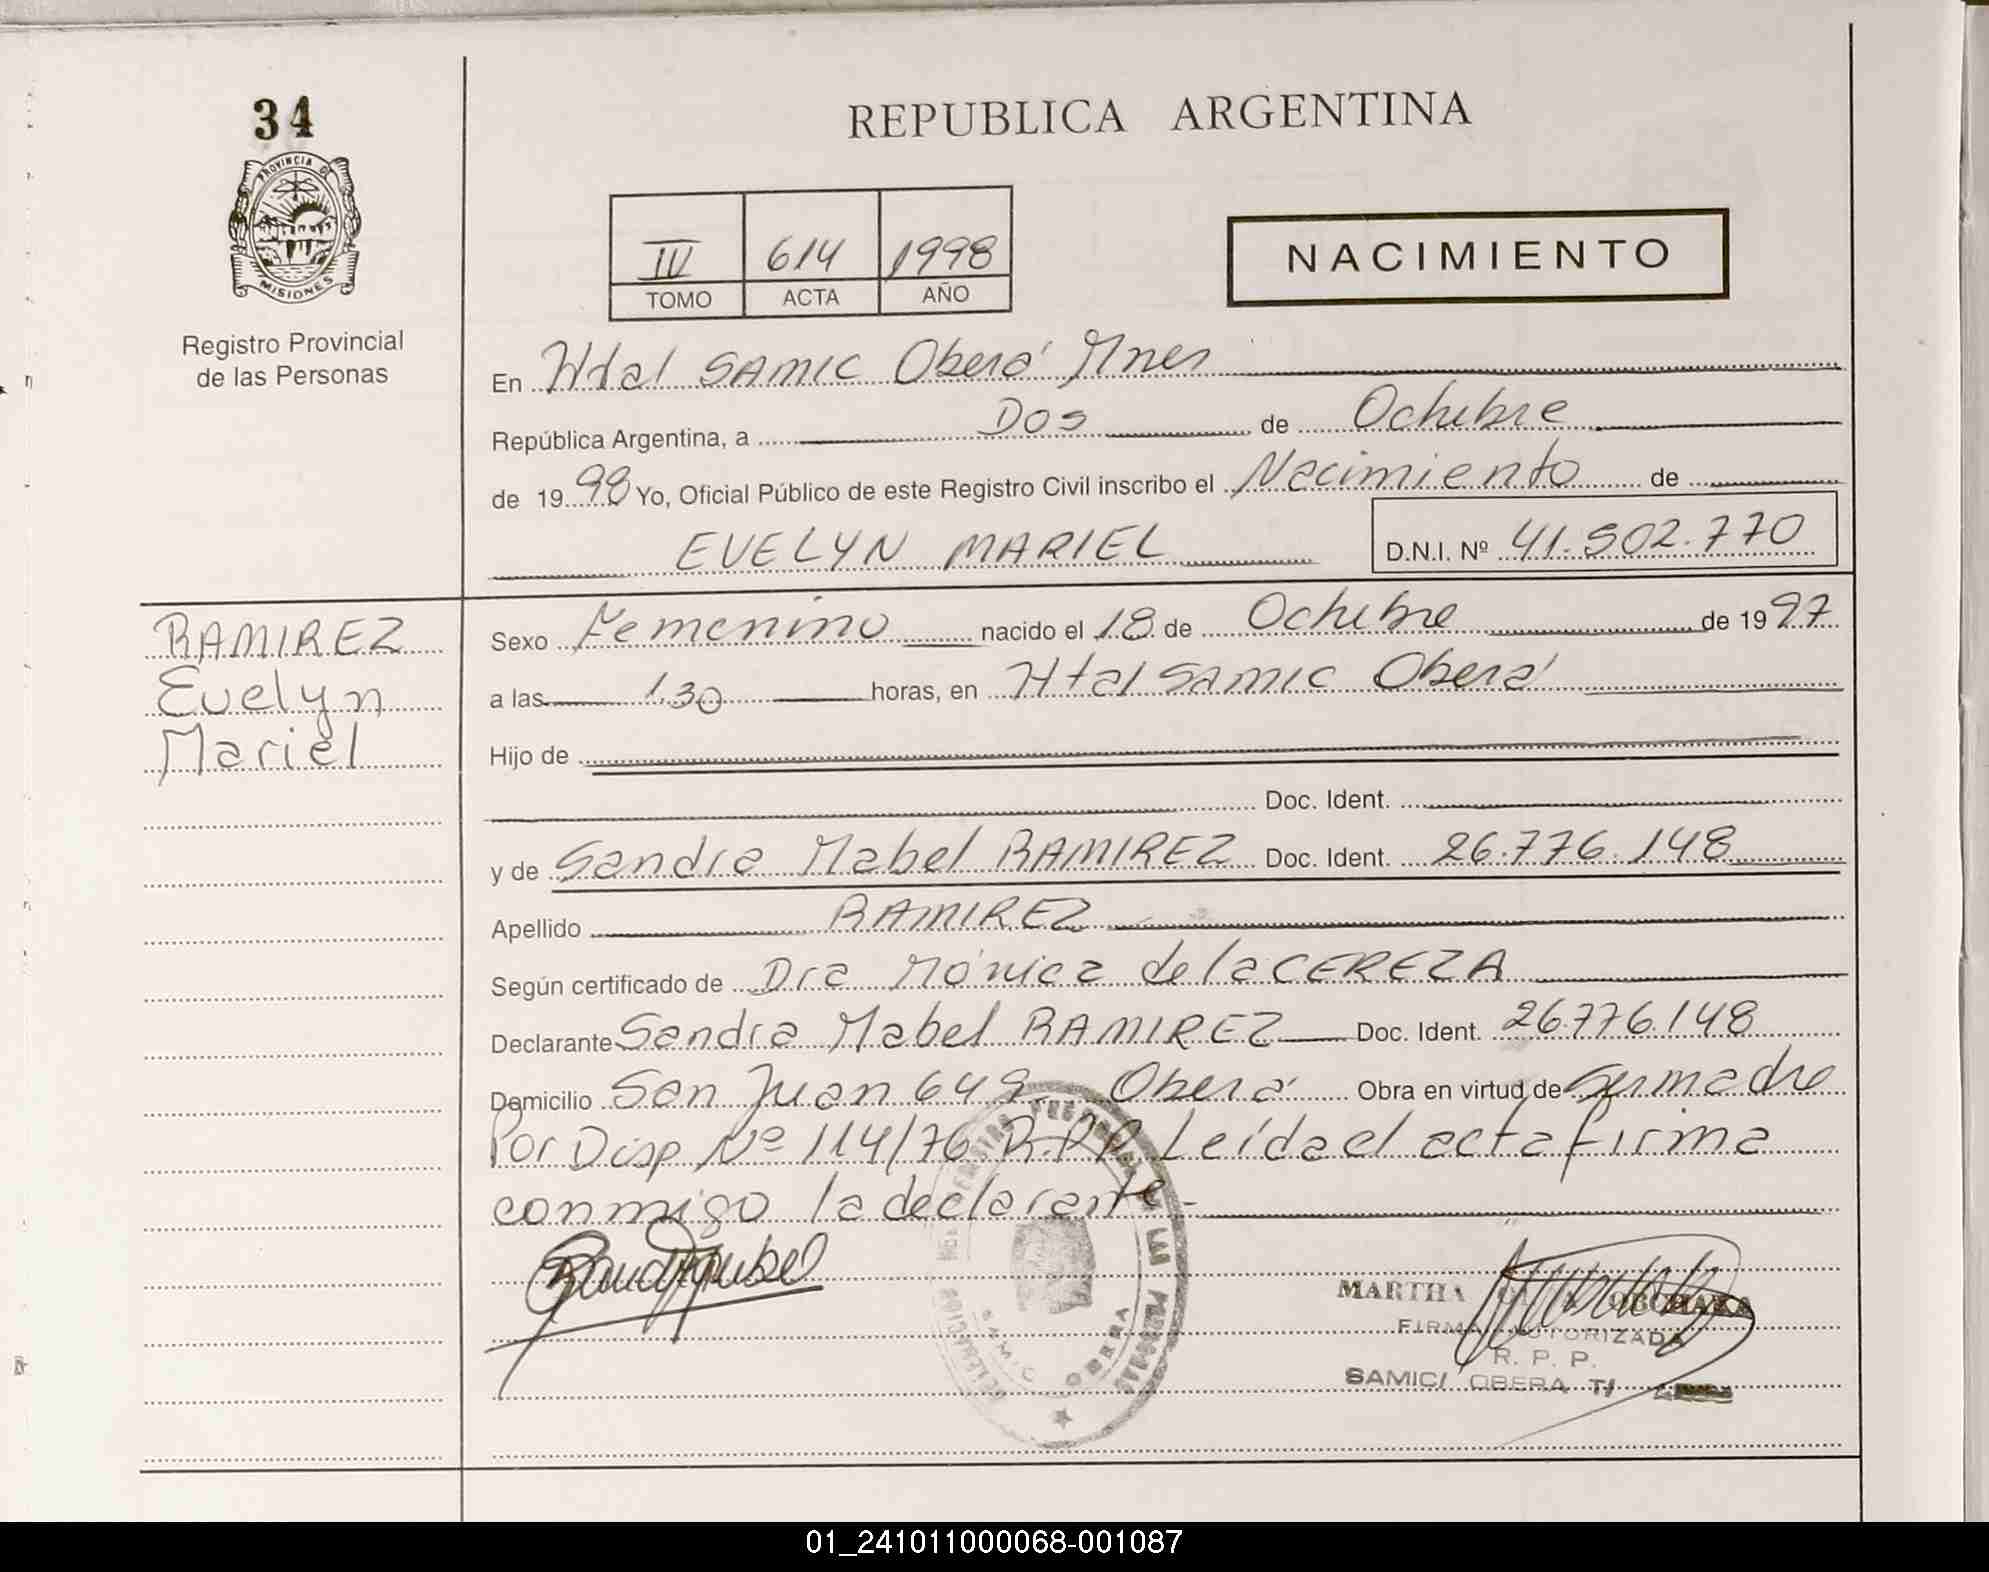 34
REPUBLICA ARGENTINA
PROVINCIA DE
MISIONES
IV 614 1998
TOMO ACTA AÑO
NACIMIENTO
Registro Provincial
de las Personas
En Htal SAMIC Oberá Mnes
República Argentina, a DOS de Octubre
de 1998 Yo, Oficial Público de este Registro Civil inscribo el Nacimiento de
EVELYN MARIEL D.N.I. Nº 41.502.770
RAMIREZ
Evelyn
Mariel
Sexo Femenino nacido el 18 de Octubre de 1997
a las 1,30 horas, en Htal SAMIC Oberá
Hijo de
Doc. Ident.
y de Sandra Mabel RAMIREZ Doc. Ident. 26.776.148
Apellido RAMIREZ
Según certificado de Dra Mónica de la CEREZA
Declarante Sandra Mabel RAMIREZ Doc. Ident. 26.776.148
Domicilio San Juan 649 Oberá Obra en virtud de ser madre
Por Disp Nº 114/76 R.P.P. Leída el acta firma
conmigo la declarante -
MARTHA
FIRMA AUTORIZADA
R. P. P.
SAMIC/ OBERA T/
SAMIC
OBERA
01_241011000068-001087